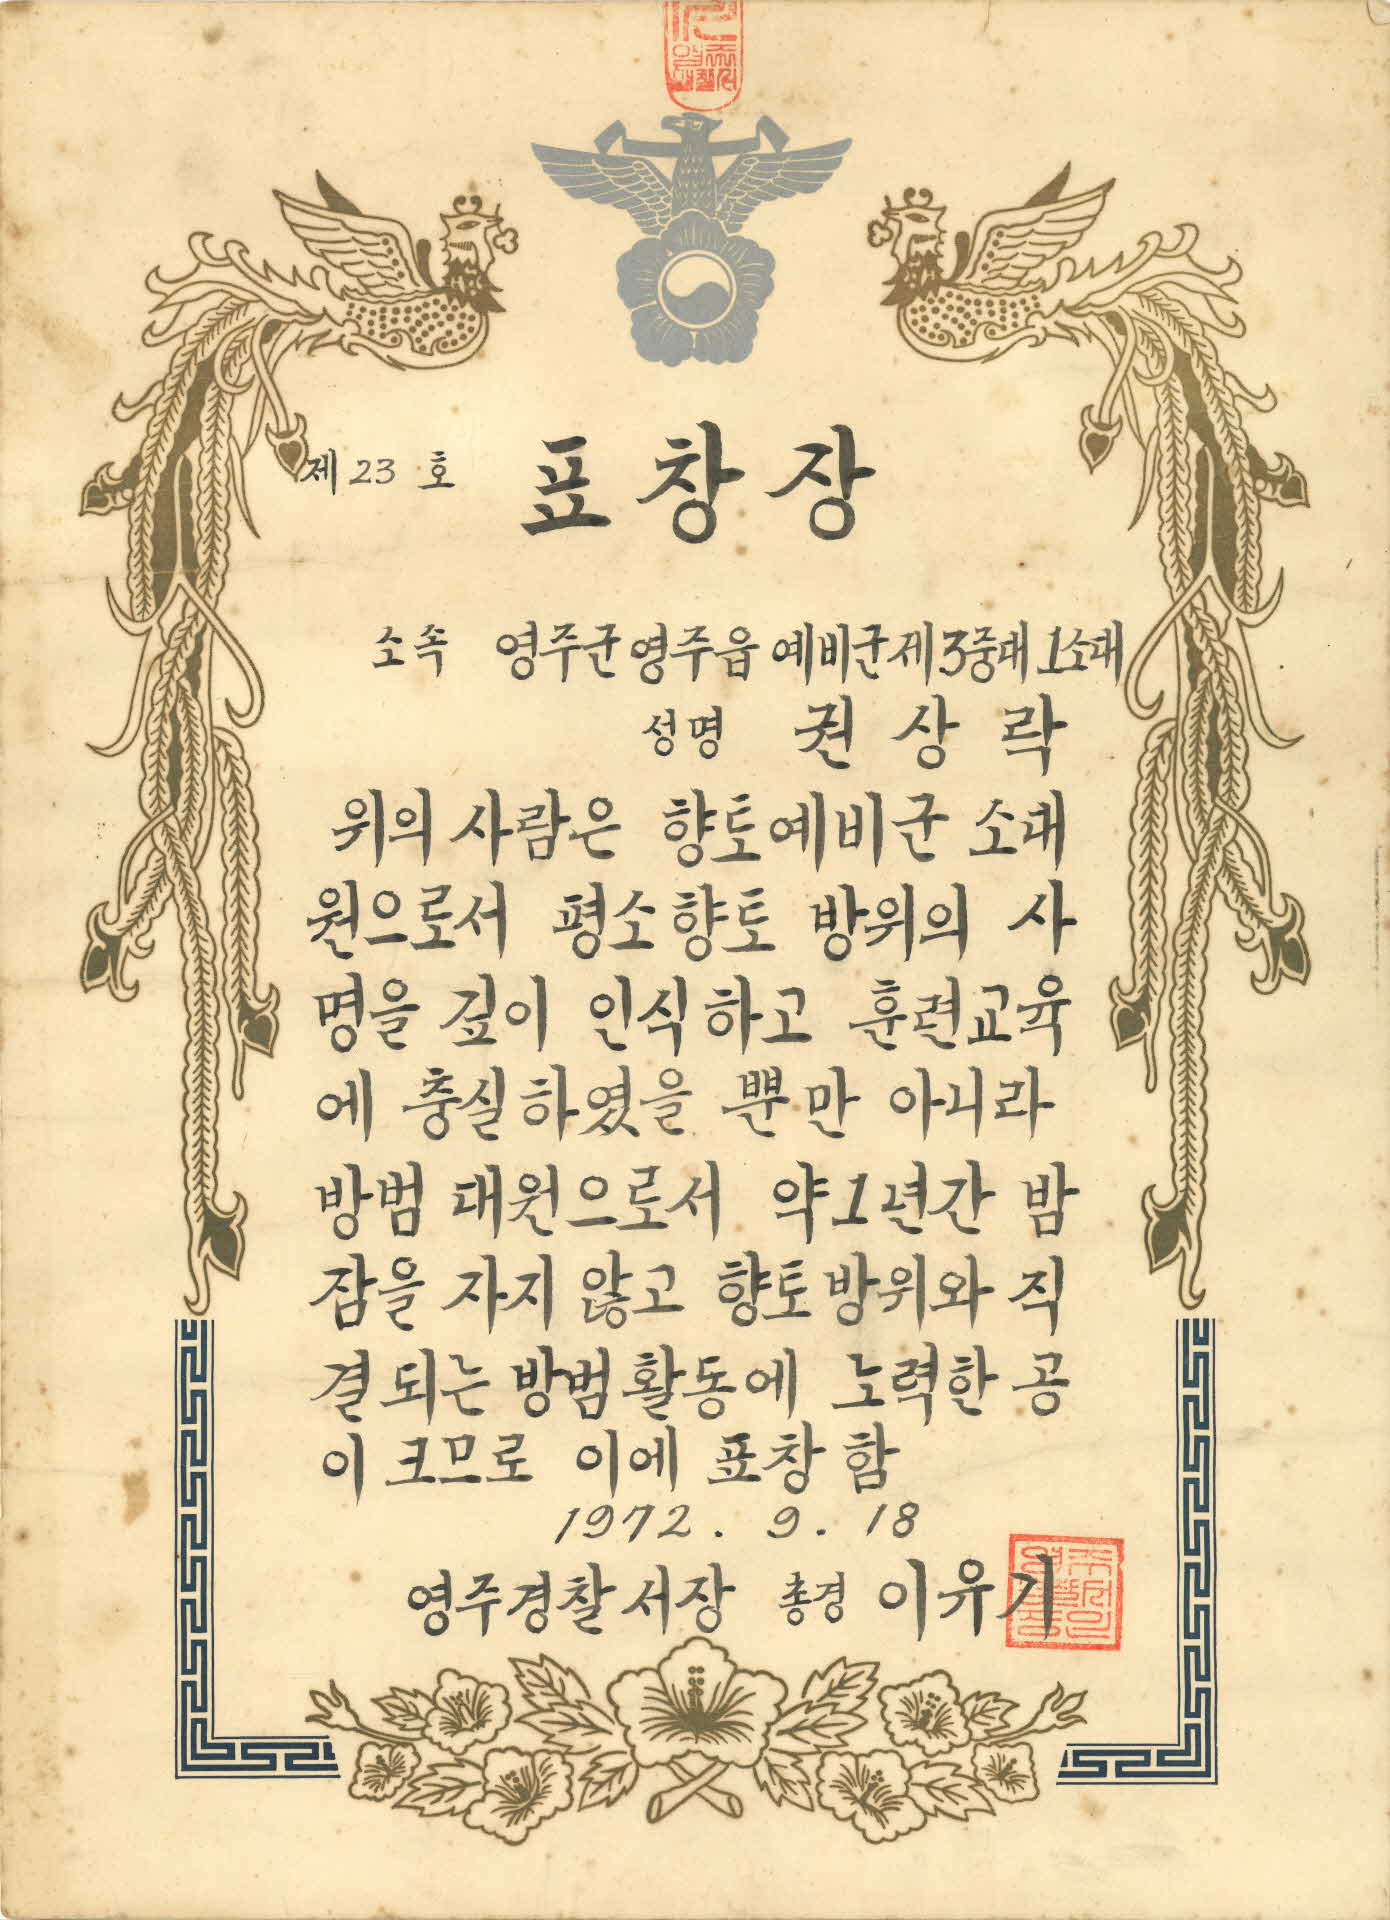 제 23 호 표창장
소속 영주군 영주읍 예비군 제3중대 1소대
성명 권상락
위의 사람은 향토예비군 소대
원으로서 평소 향토 방위의 사
명을 깊이 인식하고 훈련교육
에 충실하였을 뿐만 아니라
방범 대원으로서 약 1년간 밤
잠을 자지 않고 향토방위와 직
결되는 방범활동에 노력한 공
이 크므로 이에 표창함
1972. 9. 18
영주경찰서장 총경 이유기